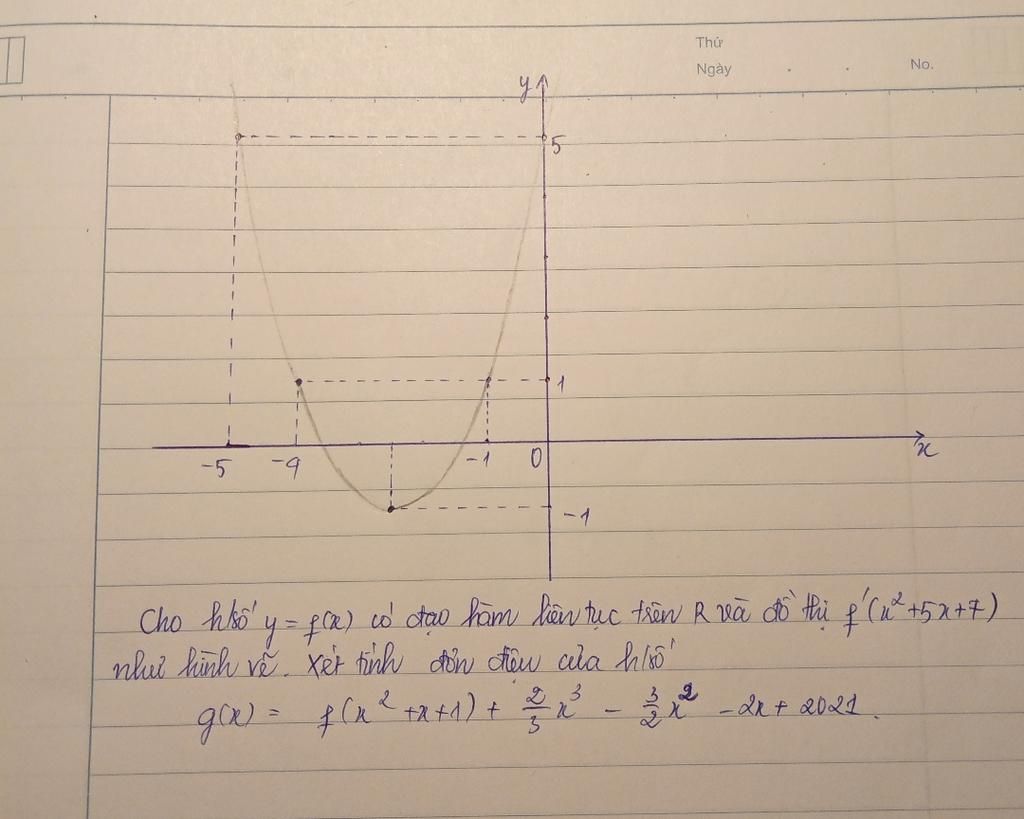 Thứ
Ngày . . No.
y
5
1
-5 -4 -1 0 x
-1
Cho h/số y = f(x) có đạo hàm liên tục trên R và đồ thị f'(x²+5x+7)
như hình vẽ. Xét tính đơn điệu của h/số
g(x) = f(x²+x+1) + 2/3 x³ - 3/2 x² - 2x + 2021.